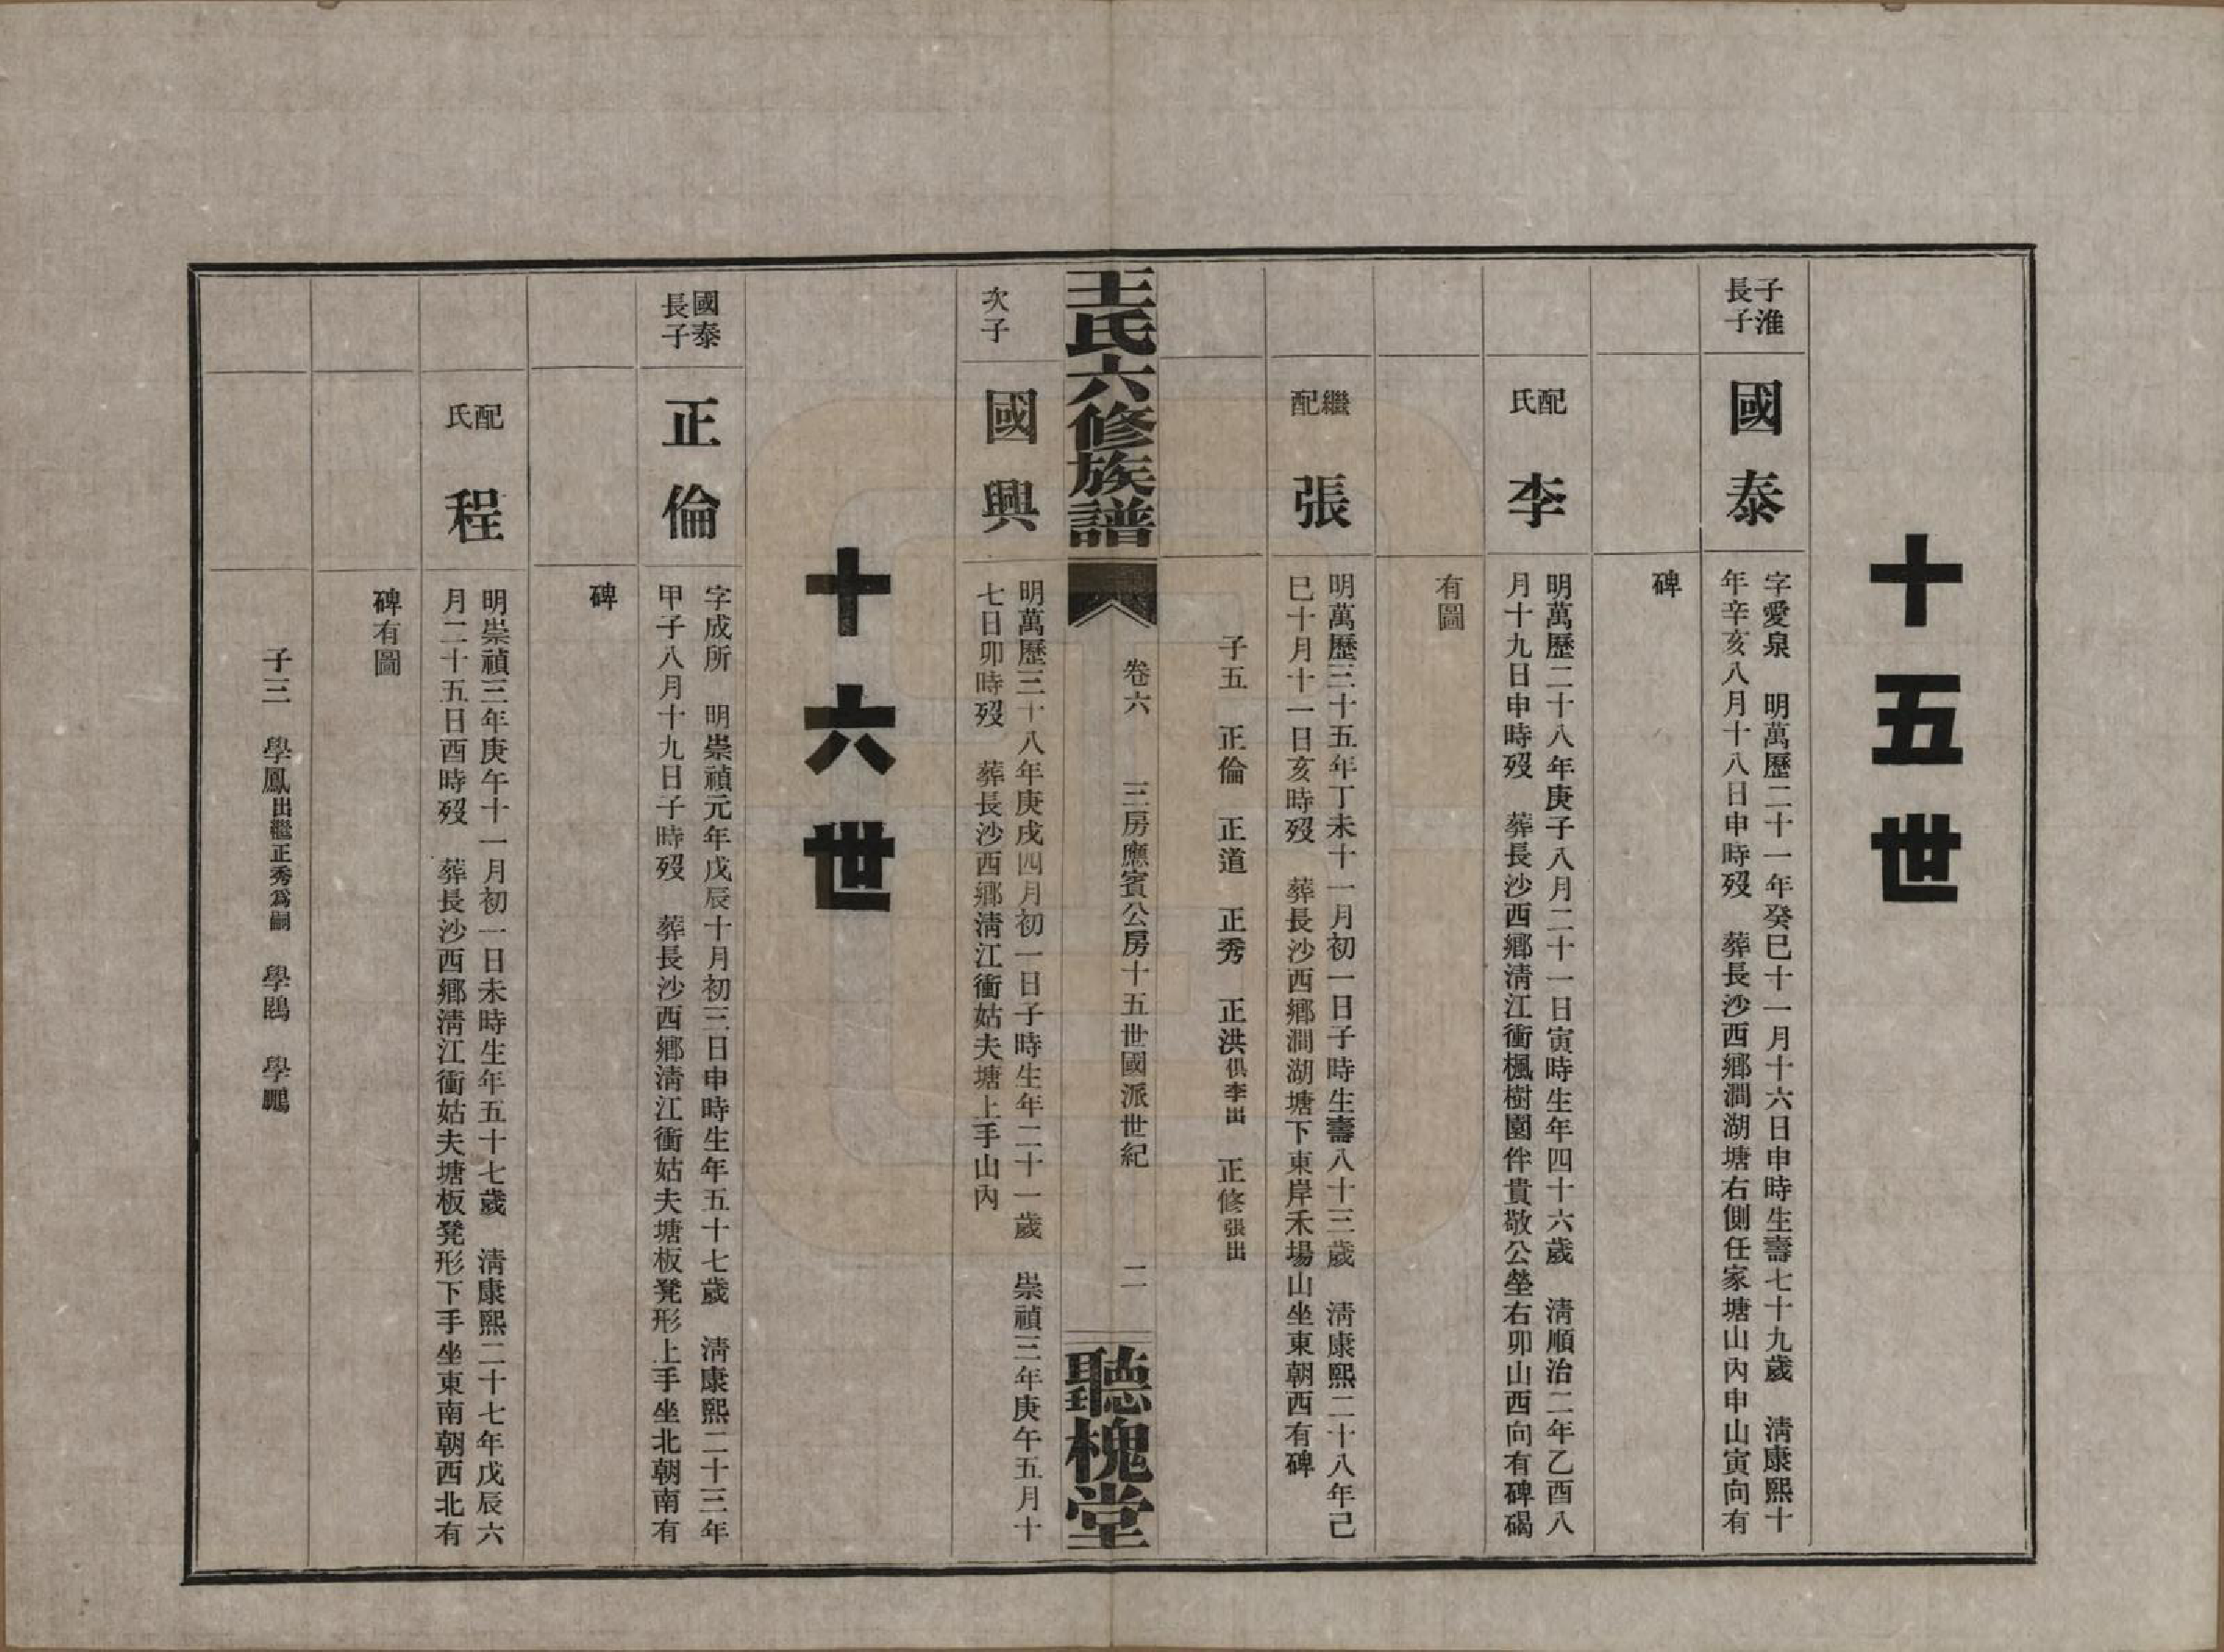 十五世
子淮
長子
國泰
字愛泉　明萬歷二十一年癸巳十一月十六日申時生壽七十九歲　清康熙十
年辛亥八月十八日申時歿　葬長沙西鄉澗湖塘右側任家塘山內申山寅向有
碑
配
氏
李
明萬歷二十八年庚子八月二十一日寅時生年四十六歲　清順治二年乙酉八
月十九日申時歿　葬長沙西鄉清江衝楓樹園伴貴敬公塋右卯山西向有碑碣
有圖
繼
配
張
明萬歷三十五年丁未十一月初一日子時生壽八十三歲　清康熙二十八年己
巳十月十一日亥時歿　葬長沙西鄉澗湖塘下東岸禾場山坐東朝西有碑
子五　正倫　正道　正秀　正洪俱李出　正修張出
王氏六修族譜
卷六　三房應賓公房十五世國派世紀　二
聽槐堂
次子
國興
明萬歷三十八年庚戌四月初一日子時生年二十一歲　崇禎三年庚午五月十
七日卯時歿　葬長沙西鄉清江衝姑夫塘上手山內
十六世
國泰
長子
正倫
字成所　明崇禎元年戊辰十月初三日申時生年五十七歲　清康熙二十三年
甲子八月十九日子時歿　葬長沙西鄉清江衝姑夫塘板凳形上手坐北朝南有
碑
配
氏
程
明崇禎三年庚午十一月初一日未時生年五十七歲　清康熙二十七年戊辰六
月二十五日酉時歿　葬長沙西鄉清江衝姑夫塘板凳形下手坐東南朝西北有
碑有圖
子三　學鳳出繼正秀為嗣　學鵾　學鵰